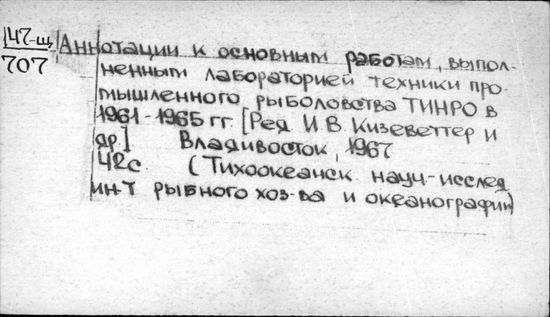 147-щ
707
Аннотации к основным работам, выпол-
ненным лабораторией техники про-
мышленного рыболовства ТИНРО в
1961-1965 гг. [Ред. И.В. Кизеветтер и
др.] Владивосток, 1967
42с. (Тихоокеанск. науч-исслед
ин-т рыбного хоз-ва и океанографии)